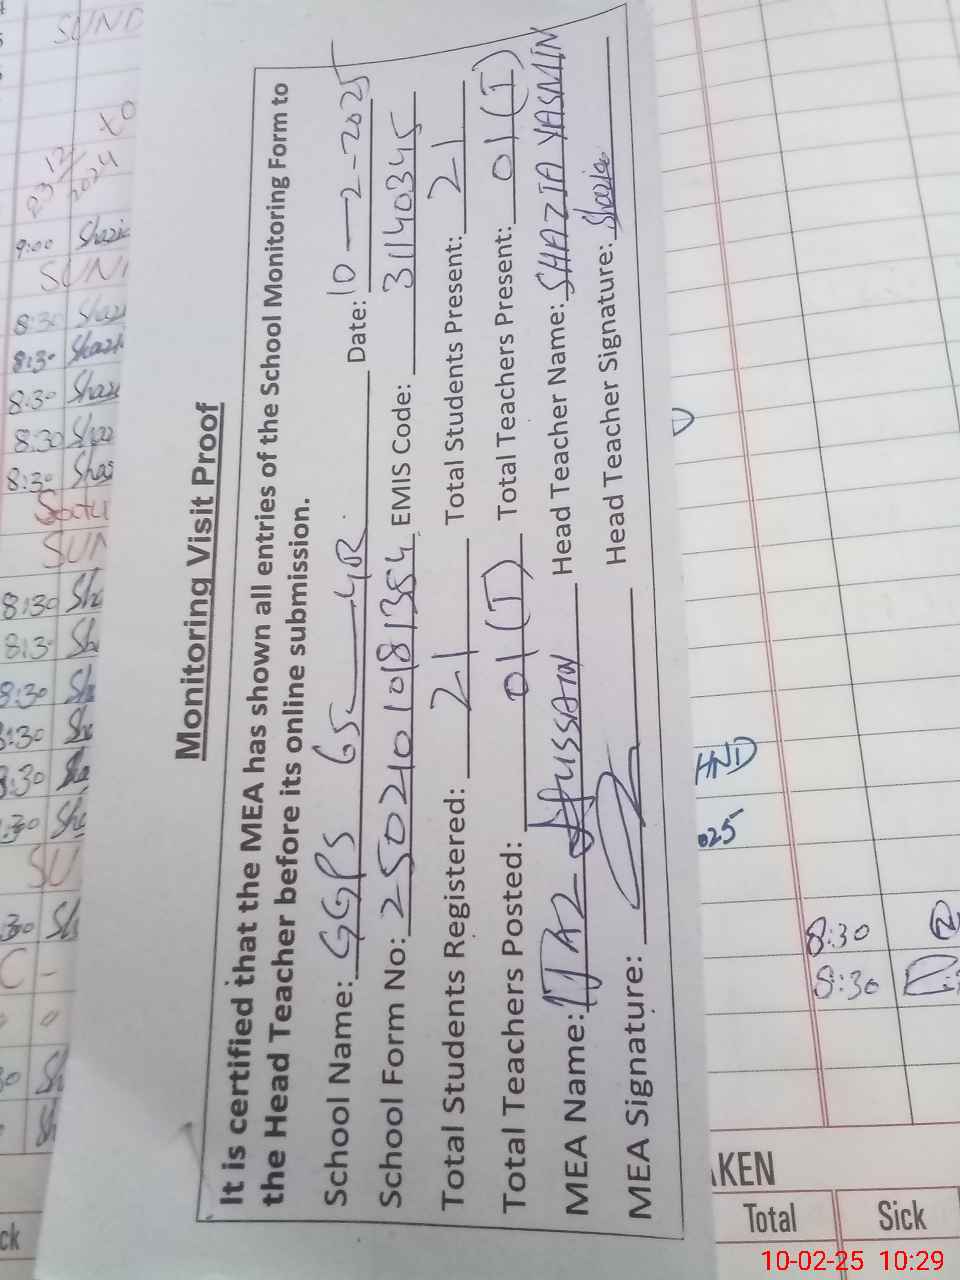 Monitoring Visit Proof
It is certified that the MEA has shown all entries of the School Monitoring Form to
the Head Teacher before its online submission.
School Name: GGPS 65—4R. Date: 10—2-2025
School Form No: 2502101081354 EMIS Code: 31140345
Total Students Registered: 21 Total Students Present: 21
Total Teachers Posted: 01(T) Total Teachers Present: 01(T)
MEA Name: HUSSAIN Head Teacher Name: SHAZIA YASMIN
MEA Signature: Head Teacher Signature: Shazia
SUND
23 12/2024
9:00 Shazia
SUN
8:30 Shaz
8:30 Shazi
8:30 Shaz
8:30 Shaz
8:30 Shaz
SUN
8:30 Sha
8:30 Sh
8:30 Sh
8:30 Sh
8:30 Sh
:30 Sha
SU
:30 Sh
C -
" "
30 Sh
Sh
ck
HND
025
8:30
8:30
AKEN
Total Sick
10-02-25 10:29